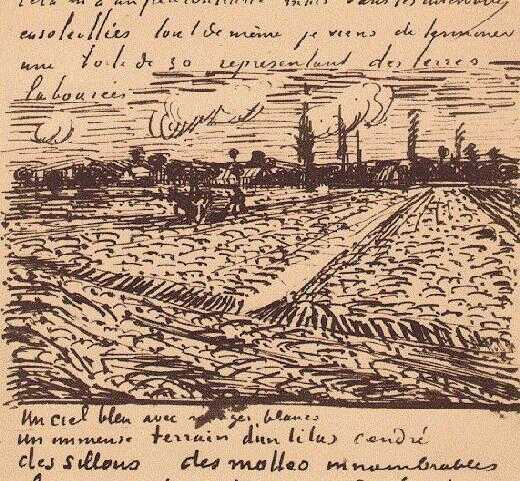 ensoleillées tout de même je viens de terminer
une toile de 30 représentant des terres
labourées
Un ciel bleu avec nuages blancs
un immense terrain d'un lilas cendré
des sillons des mottes innombrables